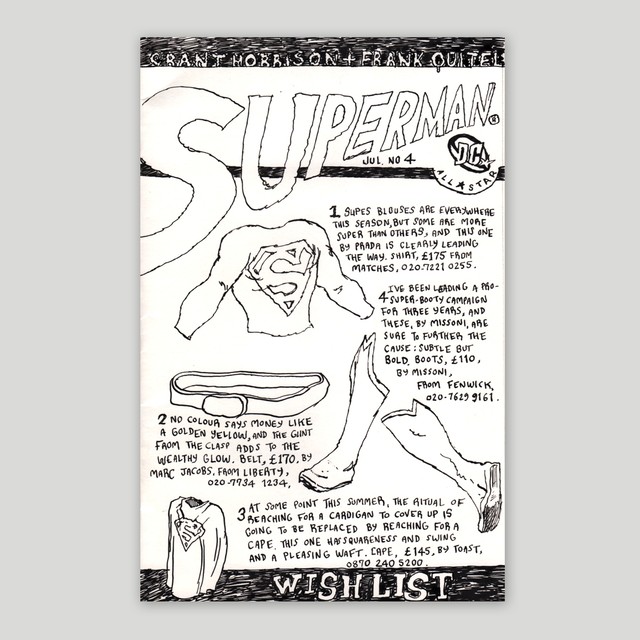 GRANT MORRISON + FRANK QUITEL
SUPERMAN®
JUL. NO 4
DC
ALL ★ STAR
1 SUPES BLOUSES ARE EVERYWHERE
THIS SEASON, BUT SOME ARE MORE
SUPER THAN OTHERS, AND THIS ONE
BY PRADA IS CLEARLY LEADING
THE WAY. SHIRT, £175 FROM
MATCHES, 020.7221 0255.
S
4 I'VE BEEN LEADING A PRO-
SUPER-BOOTY CAMPAIGN
FOR THREE YEARS, AND
THESE, BY MISSONI, ARE
SURE TO FURTHER THE
CAUSE: SUBTLE BUT
BOLD. BOOTS, £110,
BY MISSONI,
FROM FENWICK,
020-7629 9161.
2 NO COLOUR SAYS MONEY LIKE
A GOLDEN YELLOW, AND THE GLINT
FROM THE CLASP ADDS TO THE
WEALTHY GLOW. BELT, £170, BY
MARC JACOBS, FROM LIBERTY,
020-7734 1234,
3 AT SOME POINT THIS SUMMER, THE RITUAL OF
REACHING FOR A CARDIGAN TO COVER UP IS
GOING TO BE REPLACED BY REACHING FOR A
CAPE. THIS ONE HAS SQUARENESS AND SWING
AND A PLEASING WAFT. CAPE, £145, BY TOAST,
0870 240 5200.
S
WISH LIST